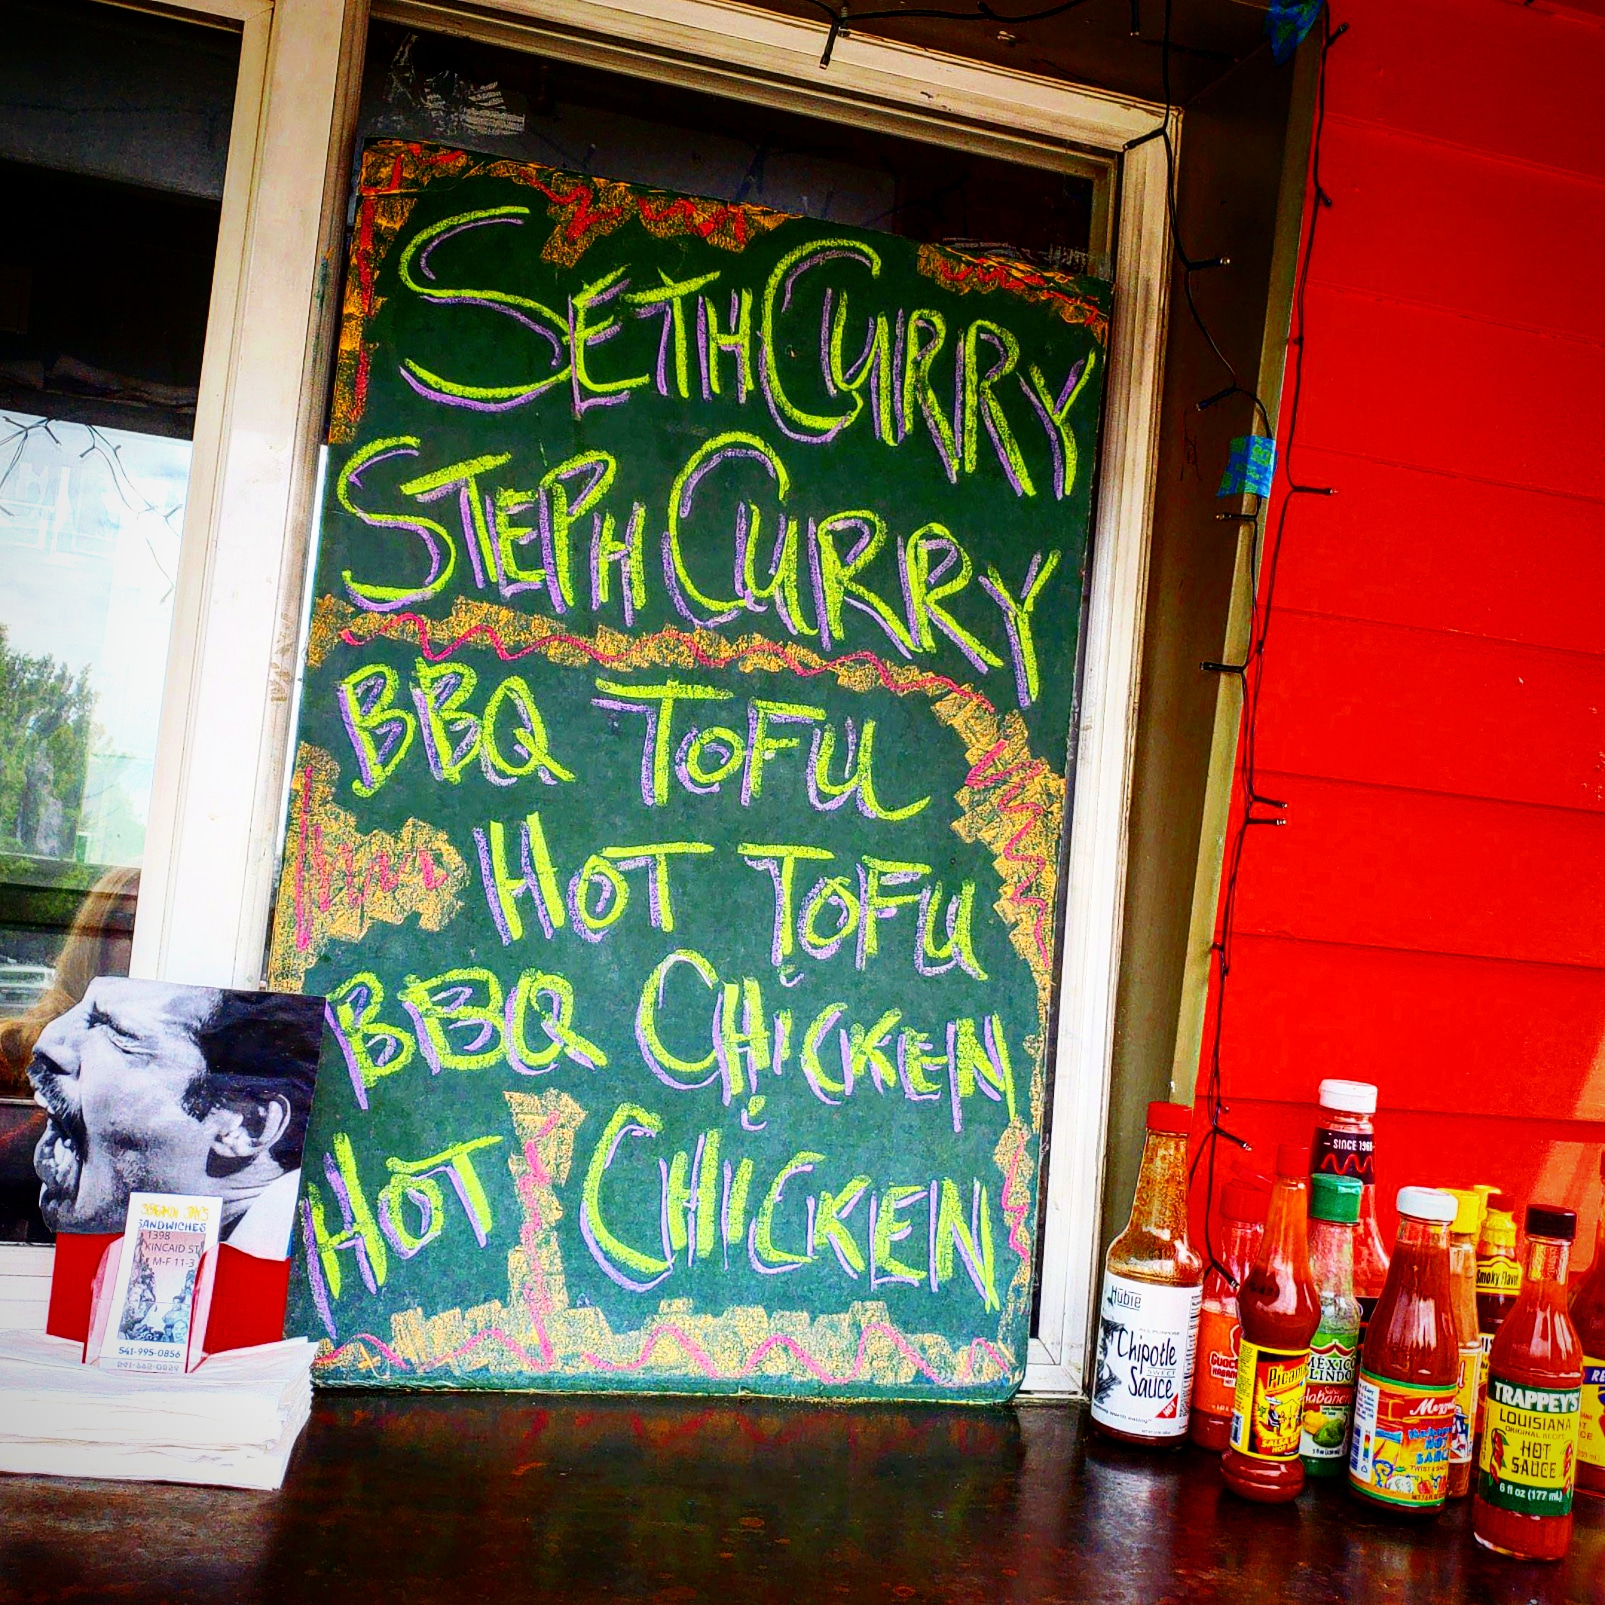 SETH CURRY
STEPH CURRY
BBQ TOFU
HOT TOFU
BBQ CHICKEN
HOT CHICKEN
SANDWICHES
1398
KINCAID ST
M-F 11-3
541-995-0856
Hubie
Chipotle
SWEET
Sauce
HOT
SINCE 1968
MEXICO
LINDO
Habanero
Smoky Flavor
TRAPPEY'S
LOUISIANA
ORIGINAL RECIPE
HOT
SAUCE
6 fl oz (177 mL)